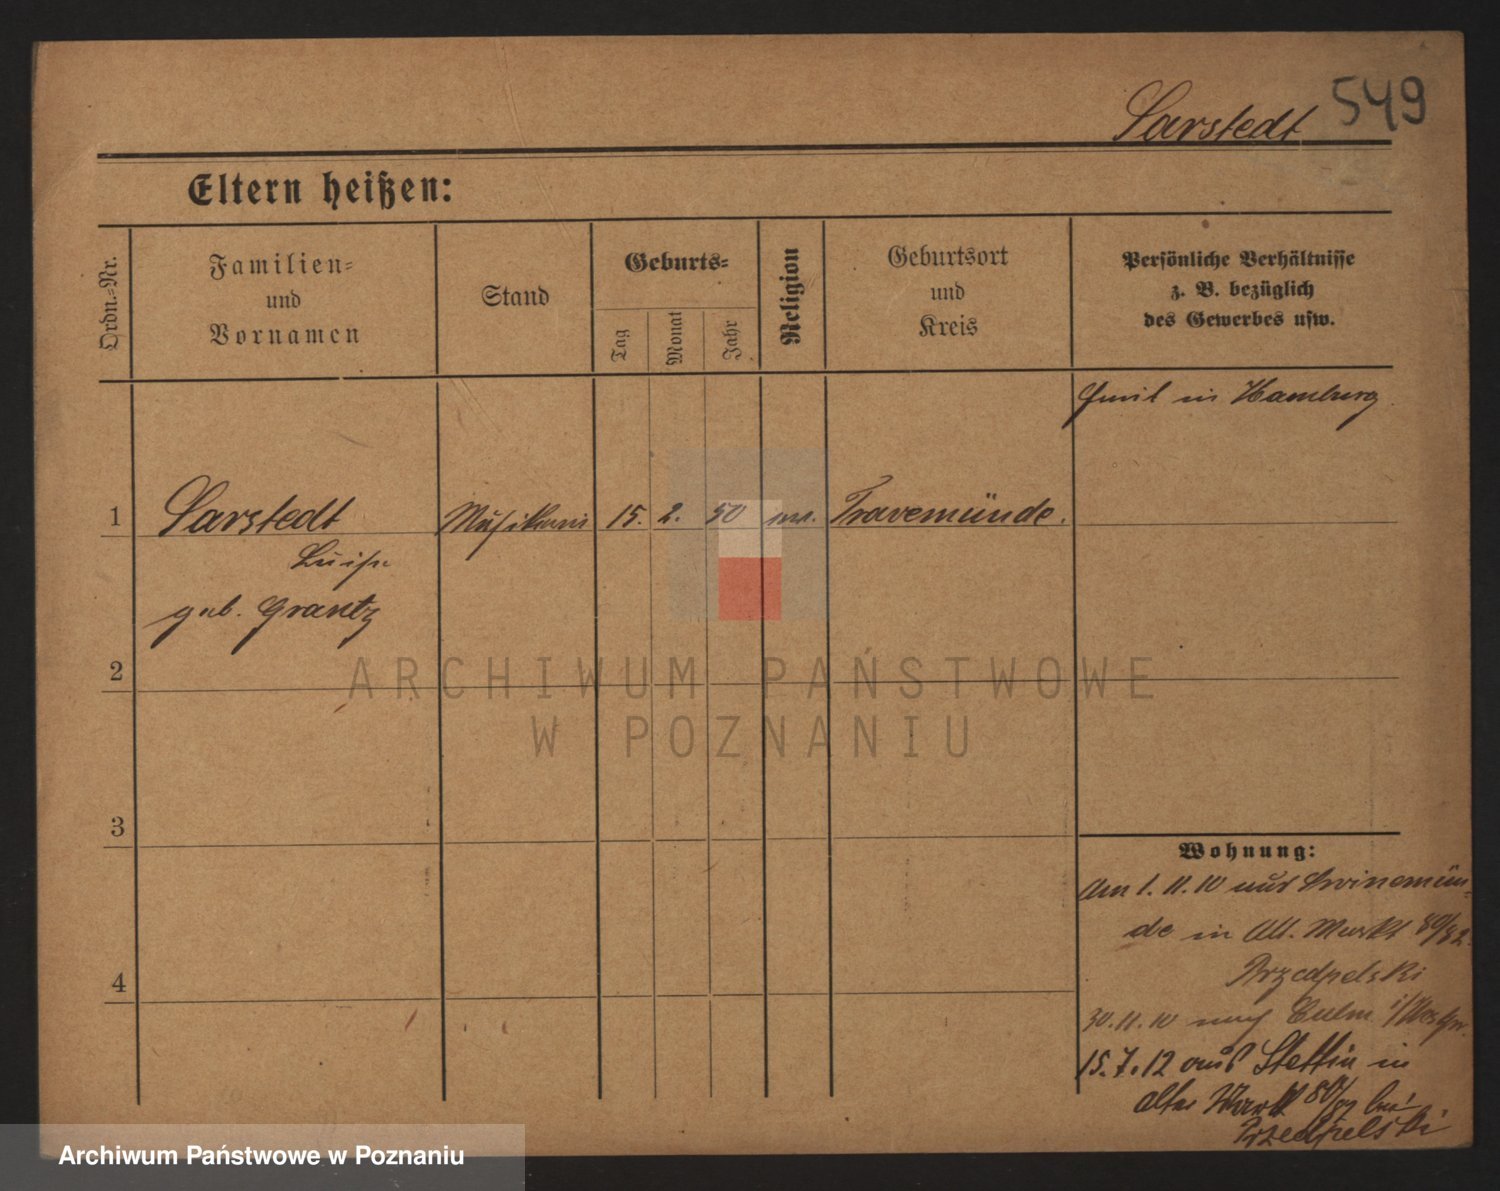 Sarstedt 549
Eltern heißen:
Ordn.-Nr.
Familien-
und
Vornamen
Stand
Geburts-
Tag
Monat
Jahr
Religion
Geburtsort
und
Kreis
Persönliche Verhältnisse
z. B. bezüglich
des Gewerbes usw.
Emil in Hamburg
1 Sarstedt 15. 2. 50 Travemünde.
Luise
geb. Grantz
2
3
4
Wohnung:
Am 1. 11. 10 aus Swinemün-
de in Alt. Markt 80/82.
Przedpelski
30.11.10 nach Culm i/Westpr.
15.7.12 aus Stettin in
alter Markt 80/82 bei
Przedpelski
ARCHIWUM PAŃSTWOWE
W POZNANIU
Archiwum Państwowe w Poznaniu